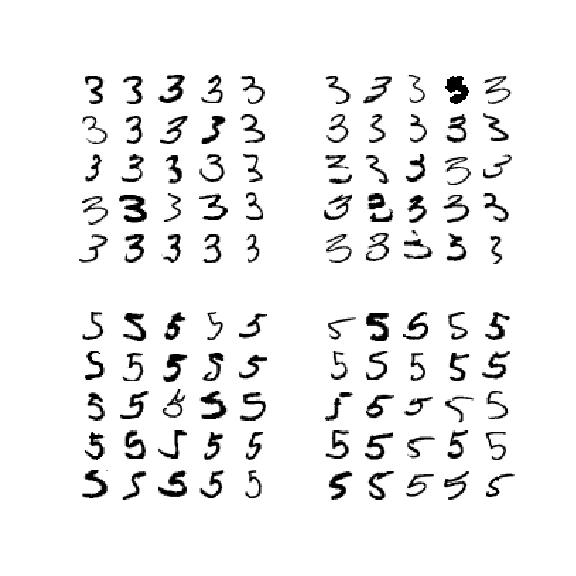 3 3 3 3 3 3 3 3 3
3 3 3 3 3 3 3 3 3 3
3 3 3 3 3 3 3 3 3 3
3 3 3 3 3 3 3 3 3
3 3 3 3 3 3 3 3 3 3
5 5 5 5 5 5 5 5 5 5
5 5 5 5 5 5 5 5 5 5
5 5 5 5 5 5 5 5 5 5
5 5 5 5 5 5 5 5 5 5
5 5 5 5 5 5 5 5 5 5